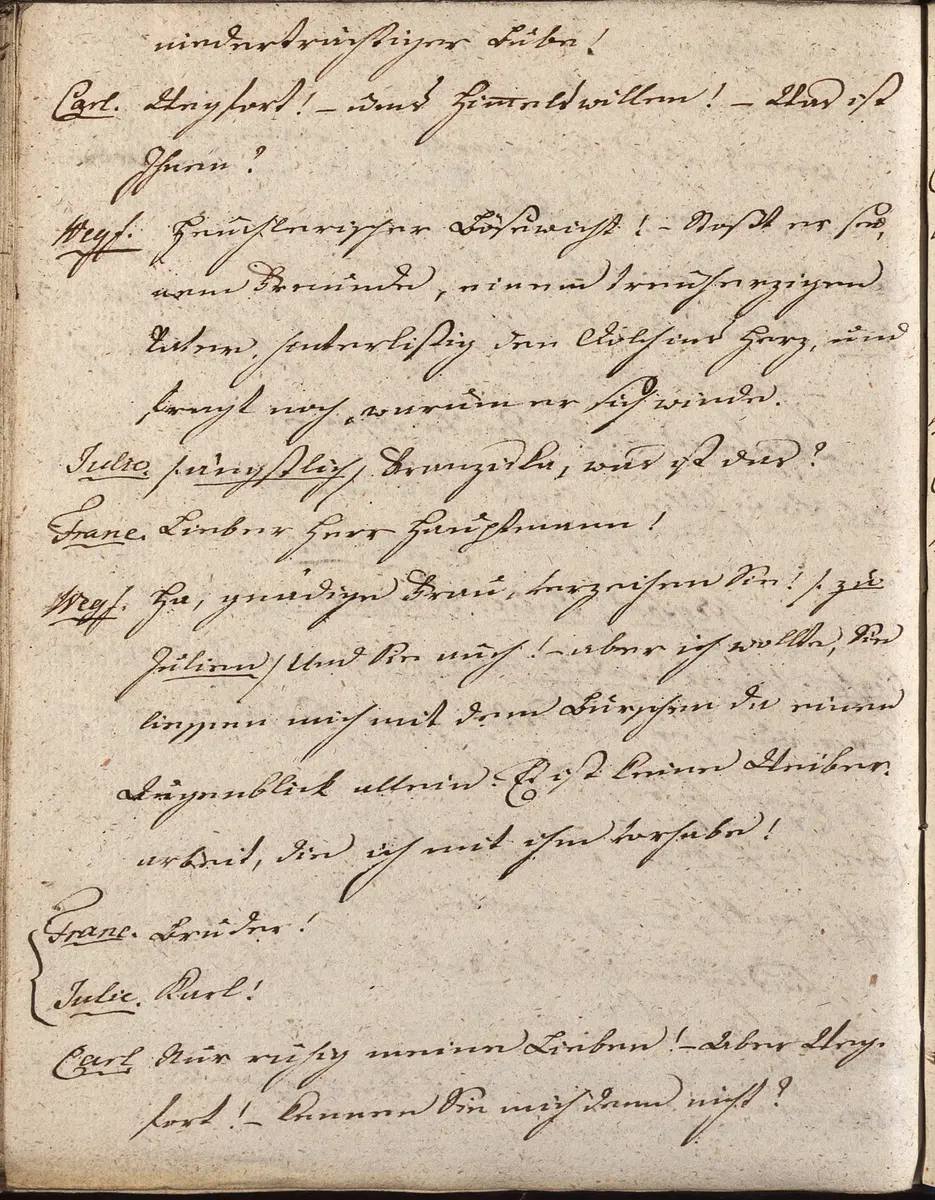 niederträchtiger Bube!
Carl. Wegfort! – ums Himmelswillen! – Was ist
Ihnen?
Wegf. Heuchlerischer Bösewicht! – Stoßt er sei,
nem Freunde, einem treuherzigen
Vater, hinterlistig den Dolch ins Herz, und
fragt noch, warum er sich winde.
Julie. /: ängstlich / Franziska, was ist das?
Franc. Lieber Herr Hauptmann!
Wegf. Ha, gnädige Frau, verzeihen Sie! /: zu
Julien / Und Sie auch! – aber ich wollte, Sie
liessen mich mit dem Burschen da einen
Augenblick allein. Es ist keine Weiber-
arbeit, die ich mit ihm vorhabe!
Franc. Bruder!
Julie. Karl!
Carl Nur ruhig meine Lieben! – Aber Weg-
fort! – kennen Sie mich denn nicht?